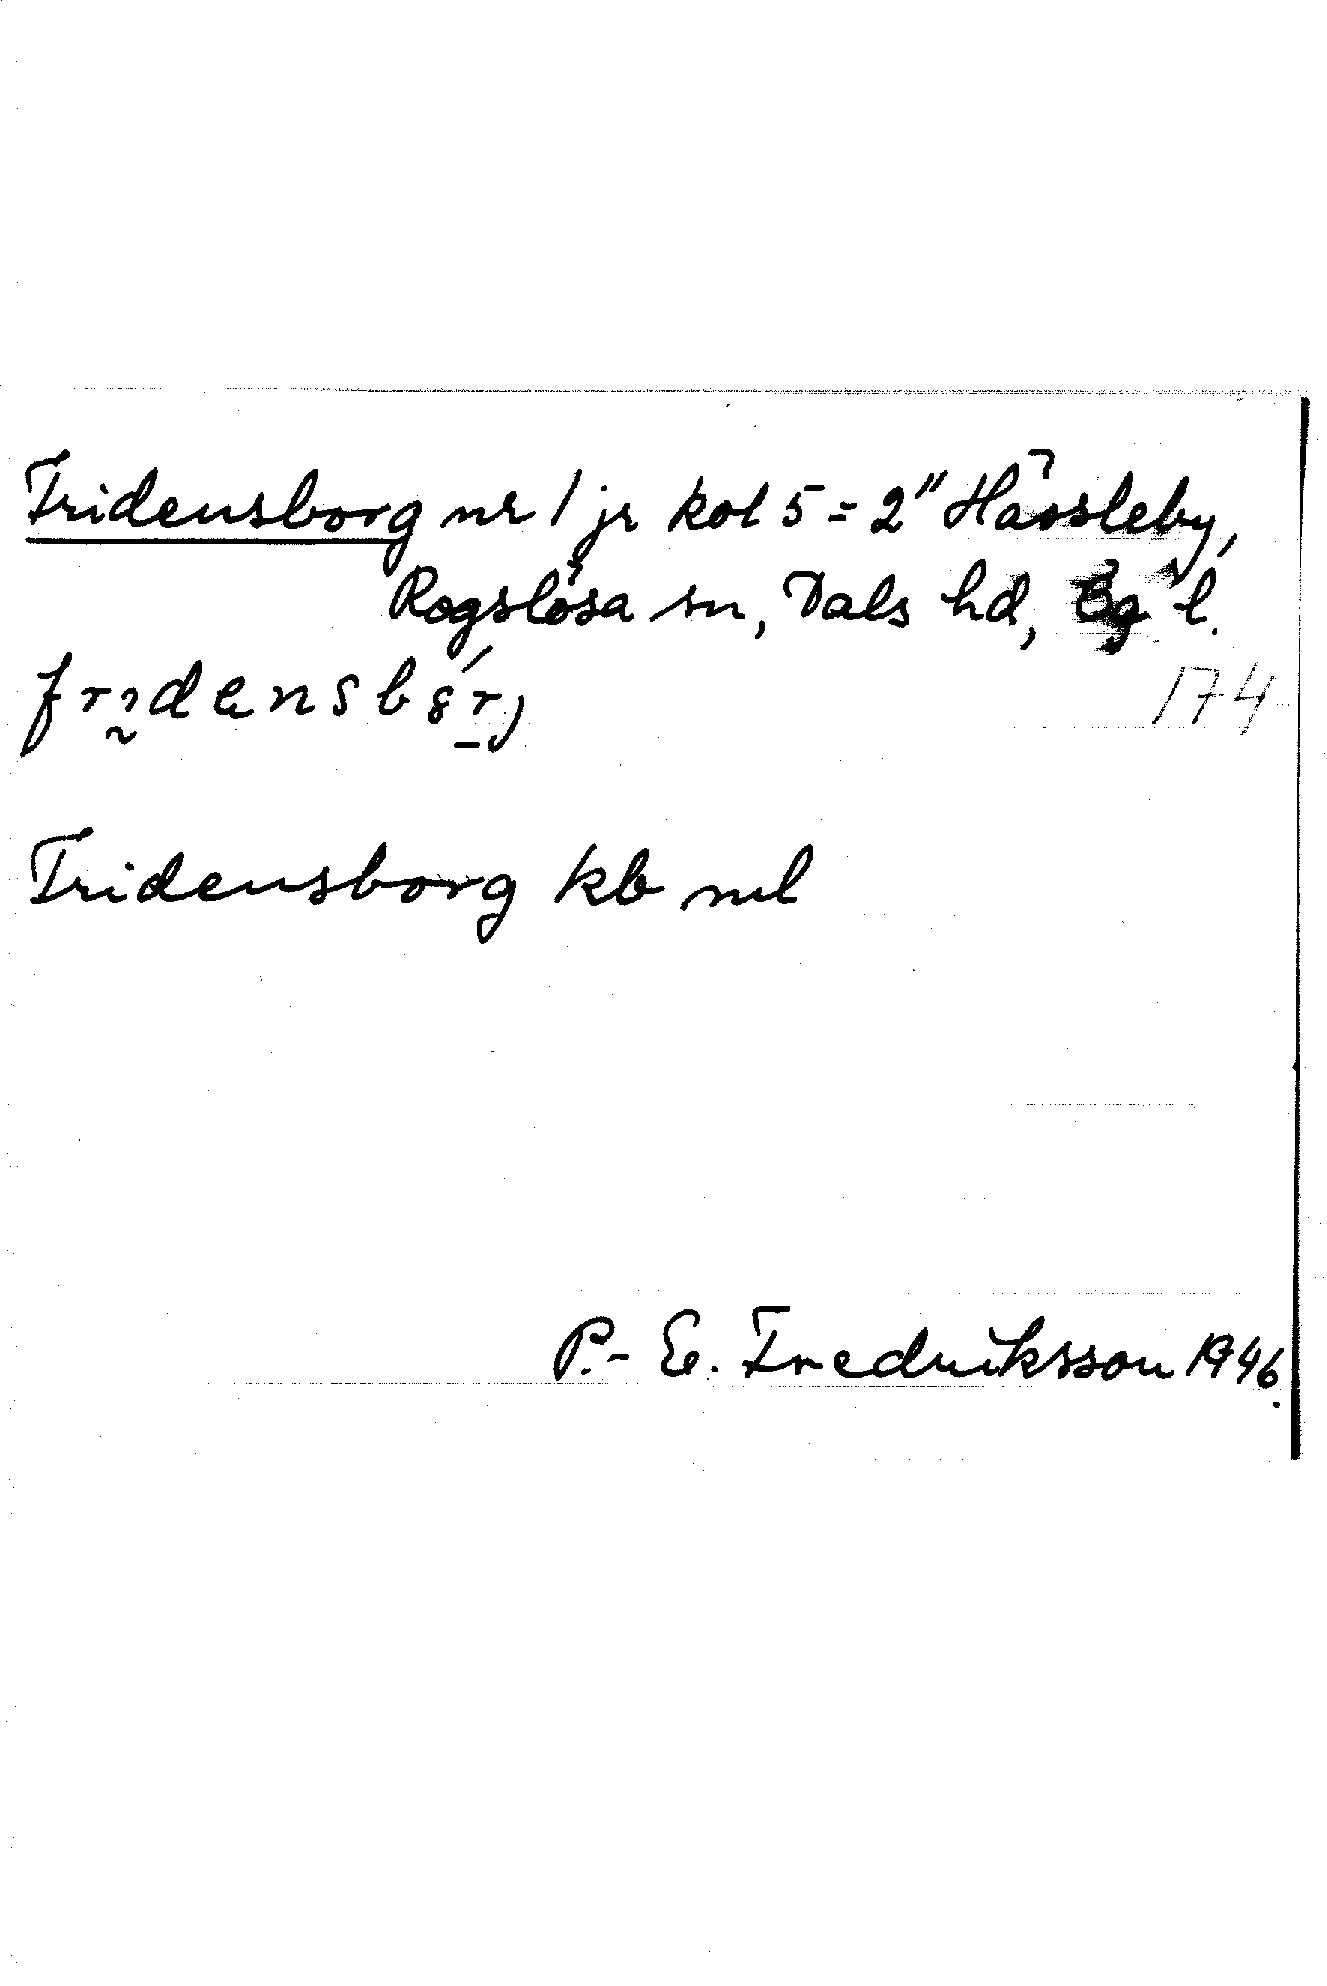 Fridensborg nr 1 jr kol 5 = 2" Håvsleby,
Rogslösa sn, Dals hd, Ög l.
174
Fridensborg kb ml
P.-E. Fredriksson 1946.